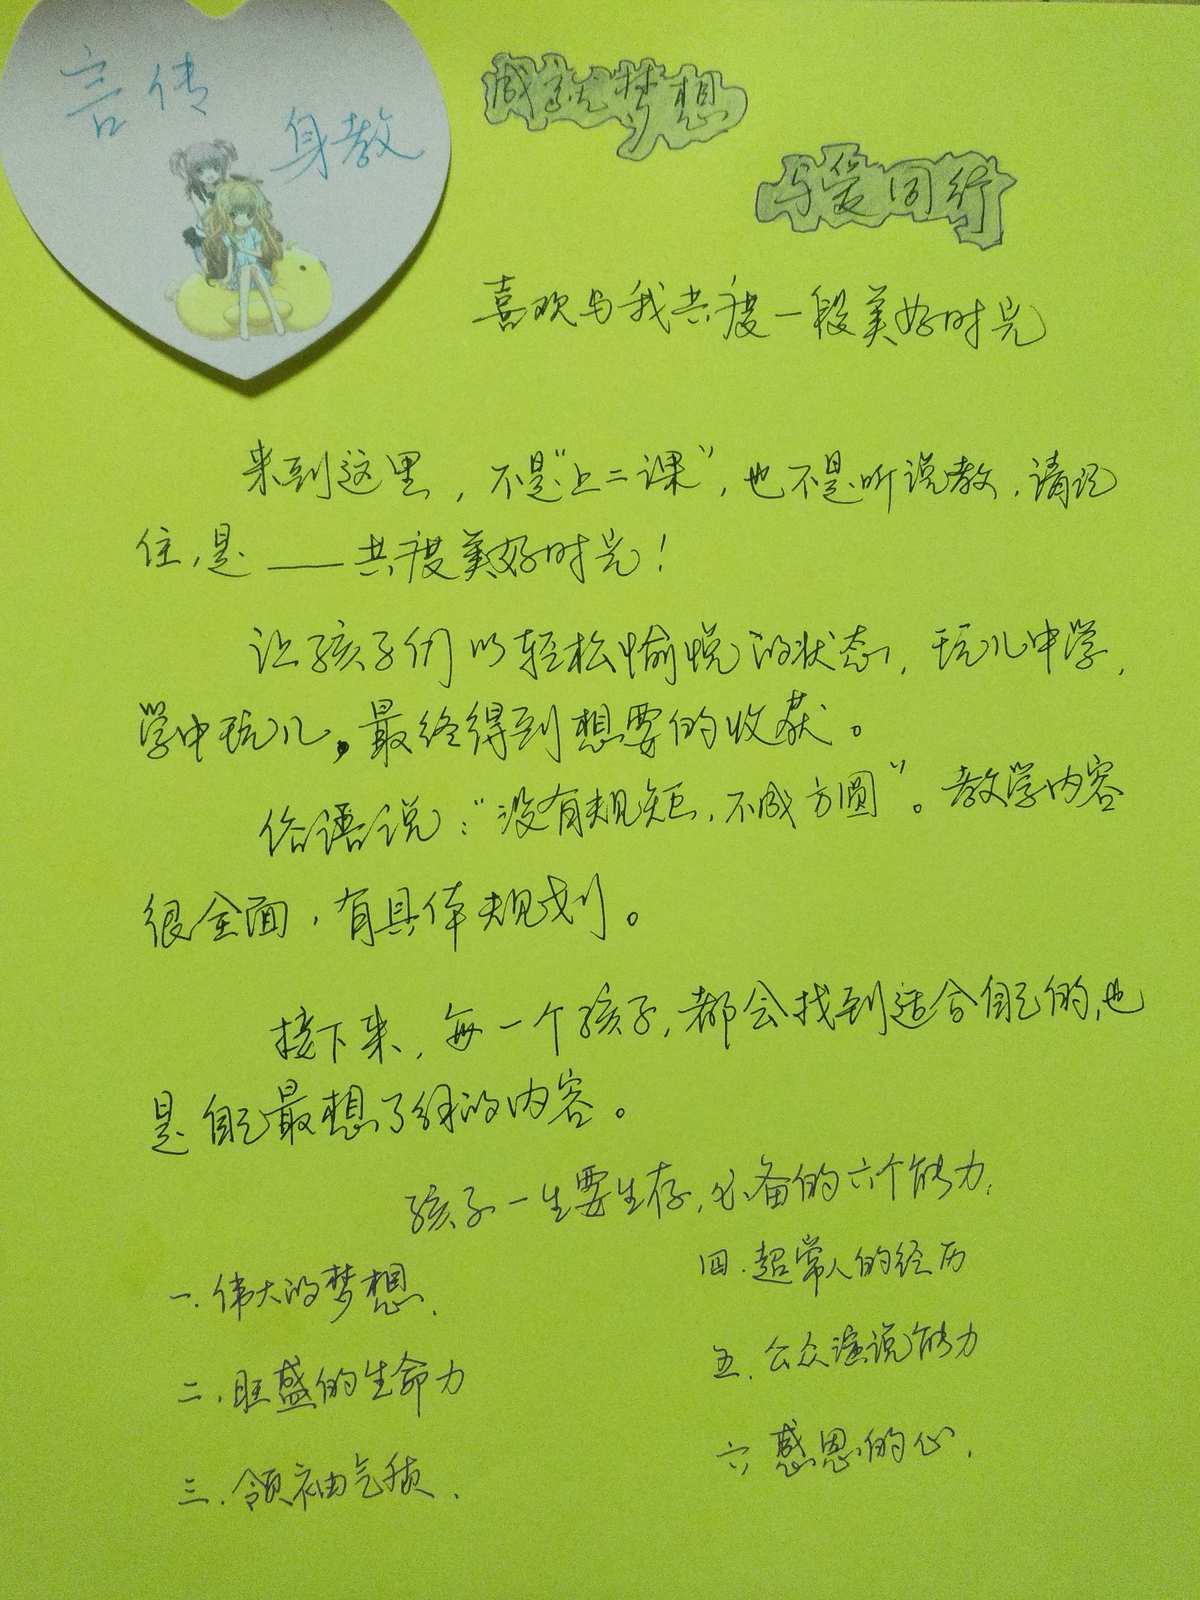 言传
身教
成就梦想
与爱同行
喜欢与我共度一段美好时光
来到这里，不是“上二课”，也不是听说教，请记
住，是——共度美好时光！
让孩子们以轻松愉悦的状态，玩儿中学，
学中玩儿。最终得到想要的收获。
俗语说：“没有规矩，不成方圆”。教学内容
很全面，有具体规划。
接下来，每一个孩子，都会找到适合自己的，也
是自己最想了解的内容。
孩子一生要生存，必备的六个能力：
一.伟大的梦想.
二.旺盛的生命力
三.领袖气质.
四.超常人的经历
五.公众演说能力
六 感恩的心.